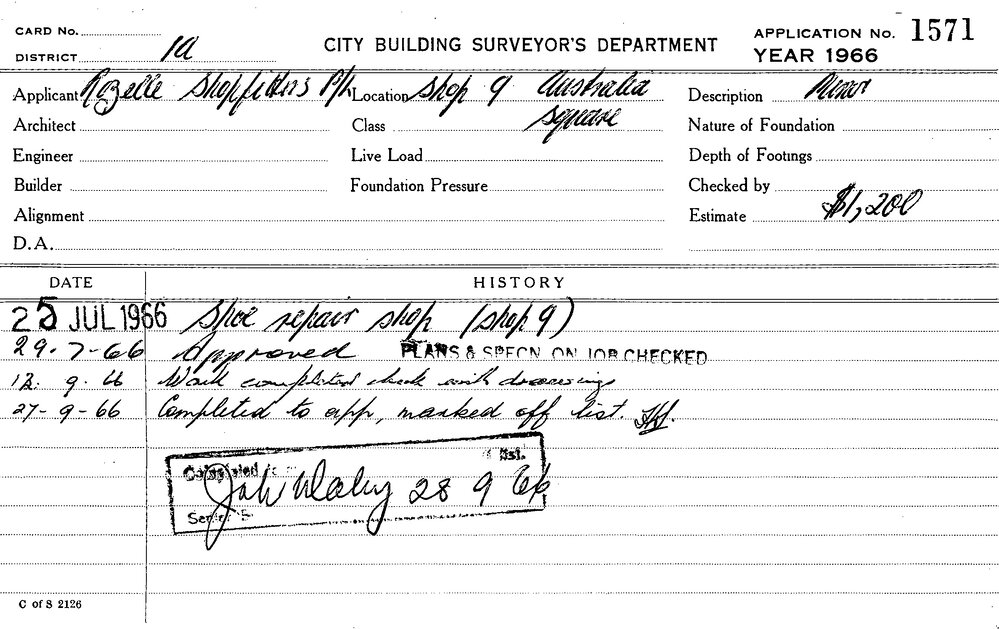 CARD No.
DISTRICT 1a
CITY BUILDING SURVEYOR'S DEPARTMENT
APPLICATION No. 1571
YEAR 1966
Applicant Rozelle Shopfitters P/L Location Shop 9 Australia Square Description Minor
Architect Class Nature of Foundation
Engineer Live Load Depth of Footings
Builder Foundation Pressure Checked by
Alignment Estimate $1,200
D.A.
DATE HISTORY
25 JUL 1966 Shoe repair shop (shop 9)
29-7-66 Approved PLANS & SPECN. ON JOB CHECKED
12. 9. 66 Work completed check with drawings
27-9-66 Completed to app, marked off list.
Completed list.
28 9 66
C of S 2126